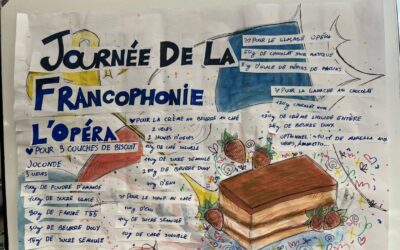 JOURNÉE DE LA
FRANCOPHONIE
L'OPÉRA
POUR 3 COUCHES DE BISCUIT
JOCONDE
3 ŒUFS
100g DE POUDRE D'AMANDE
100g DE SUCRE GLACE
30g DE FARINE T55
DE BEURRE DOUX
15g DE SUCRE SEMOULE
POUR LA CRÈME AU BEURRE AU CAFÉ
2 ŒUFS
2 JAUNES D'ŒUFS
CAFÉ SOLUBLE
DE SUCRE SEMOULE
DE BEURRE DOUX
D'EAU
POUR LE SIROP AU CAFÉ
D'EAU
DE SUCRE SEMOULE
DE CAFÉ SOLUBLE
POUR LE GLAÇAGE OPÉRA
DE CHOCOLAT NOIR
D'HUILE DE PÉPINS DE RAISINS
POUR LA GANACHE AU CHOCOLAT
CHOCOLAT NOIR
DE CRÈME LIQUIDE ENTIÈRE
DE BEURRE DOUX
OPTIONNEL